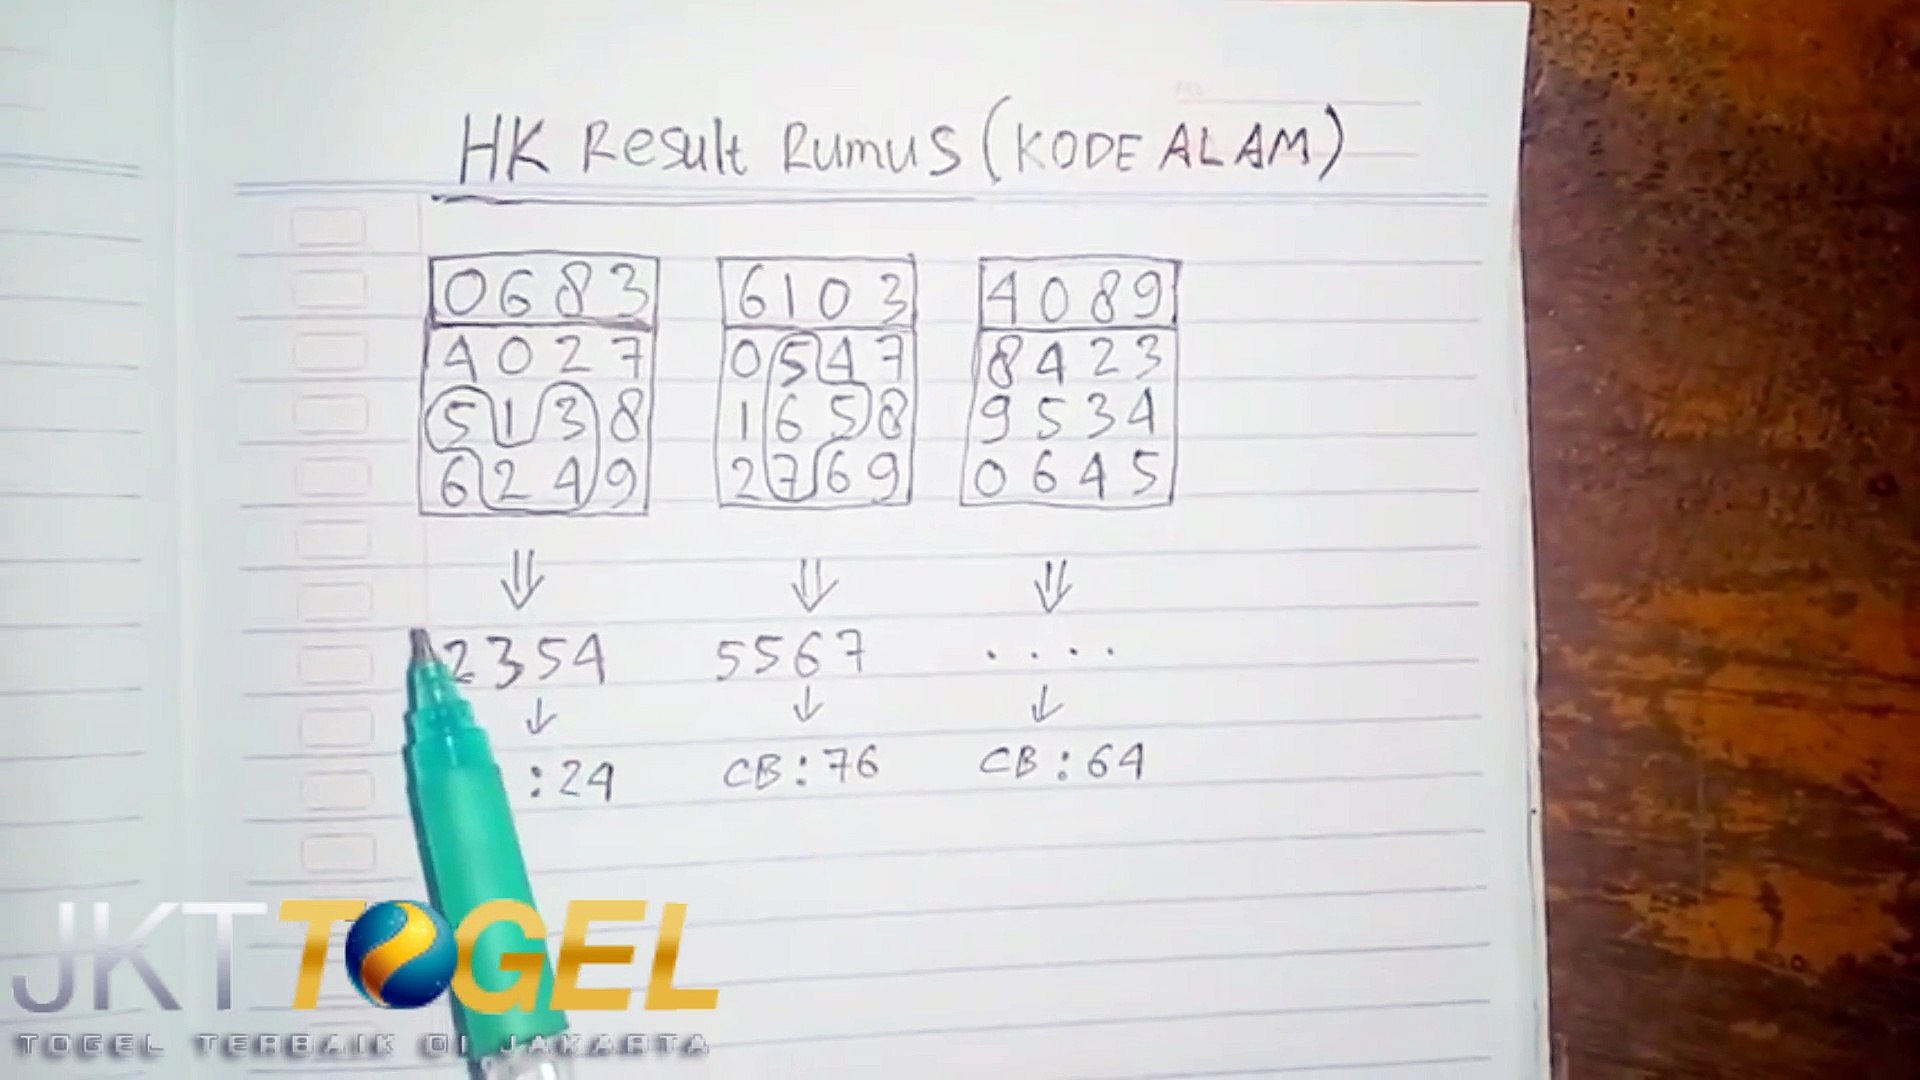 HK Result Rumus (KODE ALAM)
0683 6103 4089
4027 0547 8423
5138 1658 9534
6249 2769 0645
2354 5567 ....
:24 CB:76 CB:64
JKTTOGEL
TOGEL TERBAIK DI JAKARTA